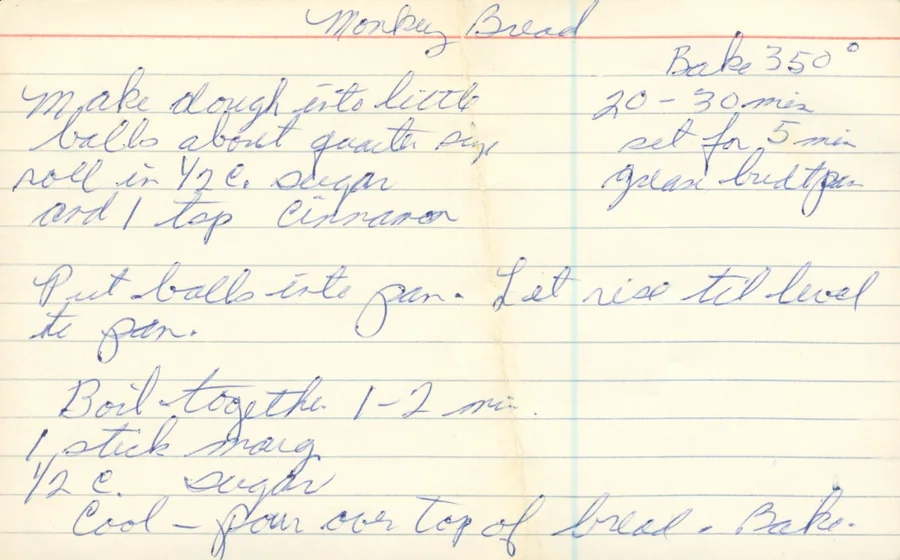 Monkey Bread
Bake 350°
20 - 30 min
set for 5 min
grease budt pan
Make dough into little
balls about quarter size
roll in 1/2 c. sugar
and 1 tsp cinnamon
Put balls into pan. Let rise til level
to pan.
Boil together 1-2 min.
1 stick marg.
1/2 c. sugar
Cool - pour over top of bread. Bake.